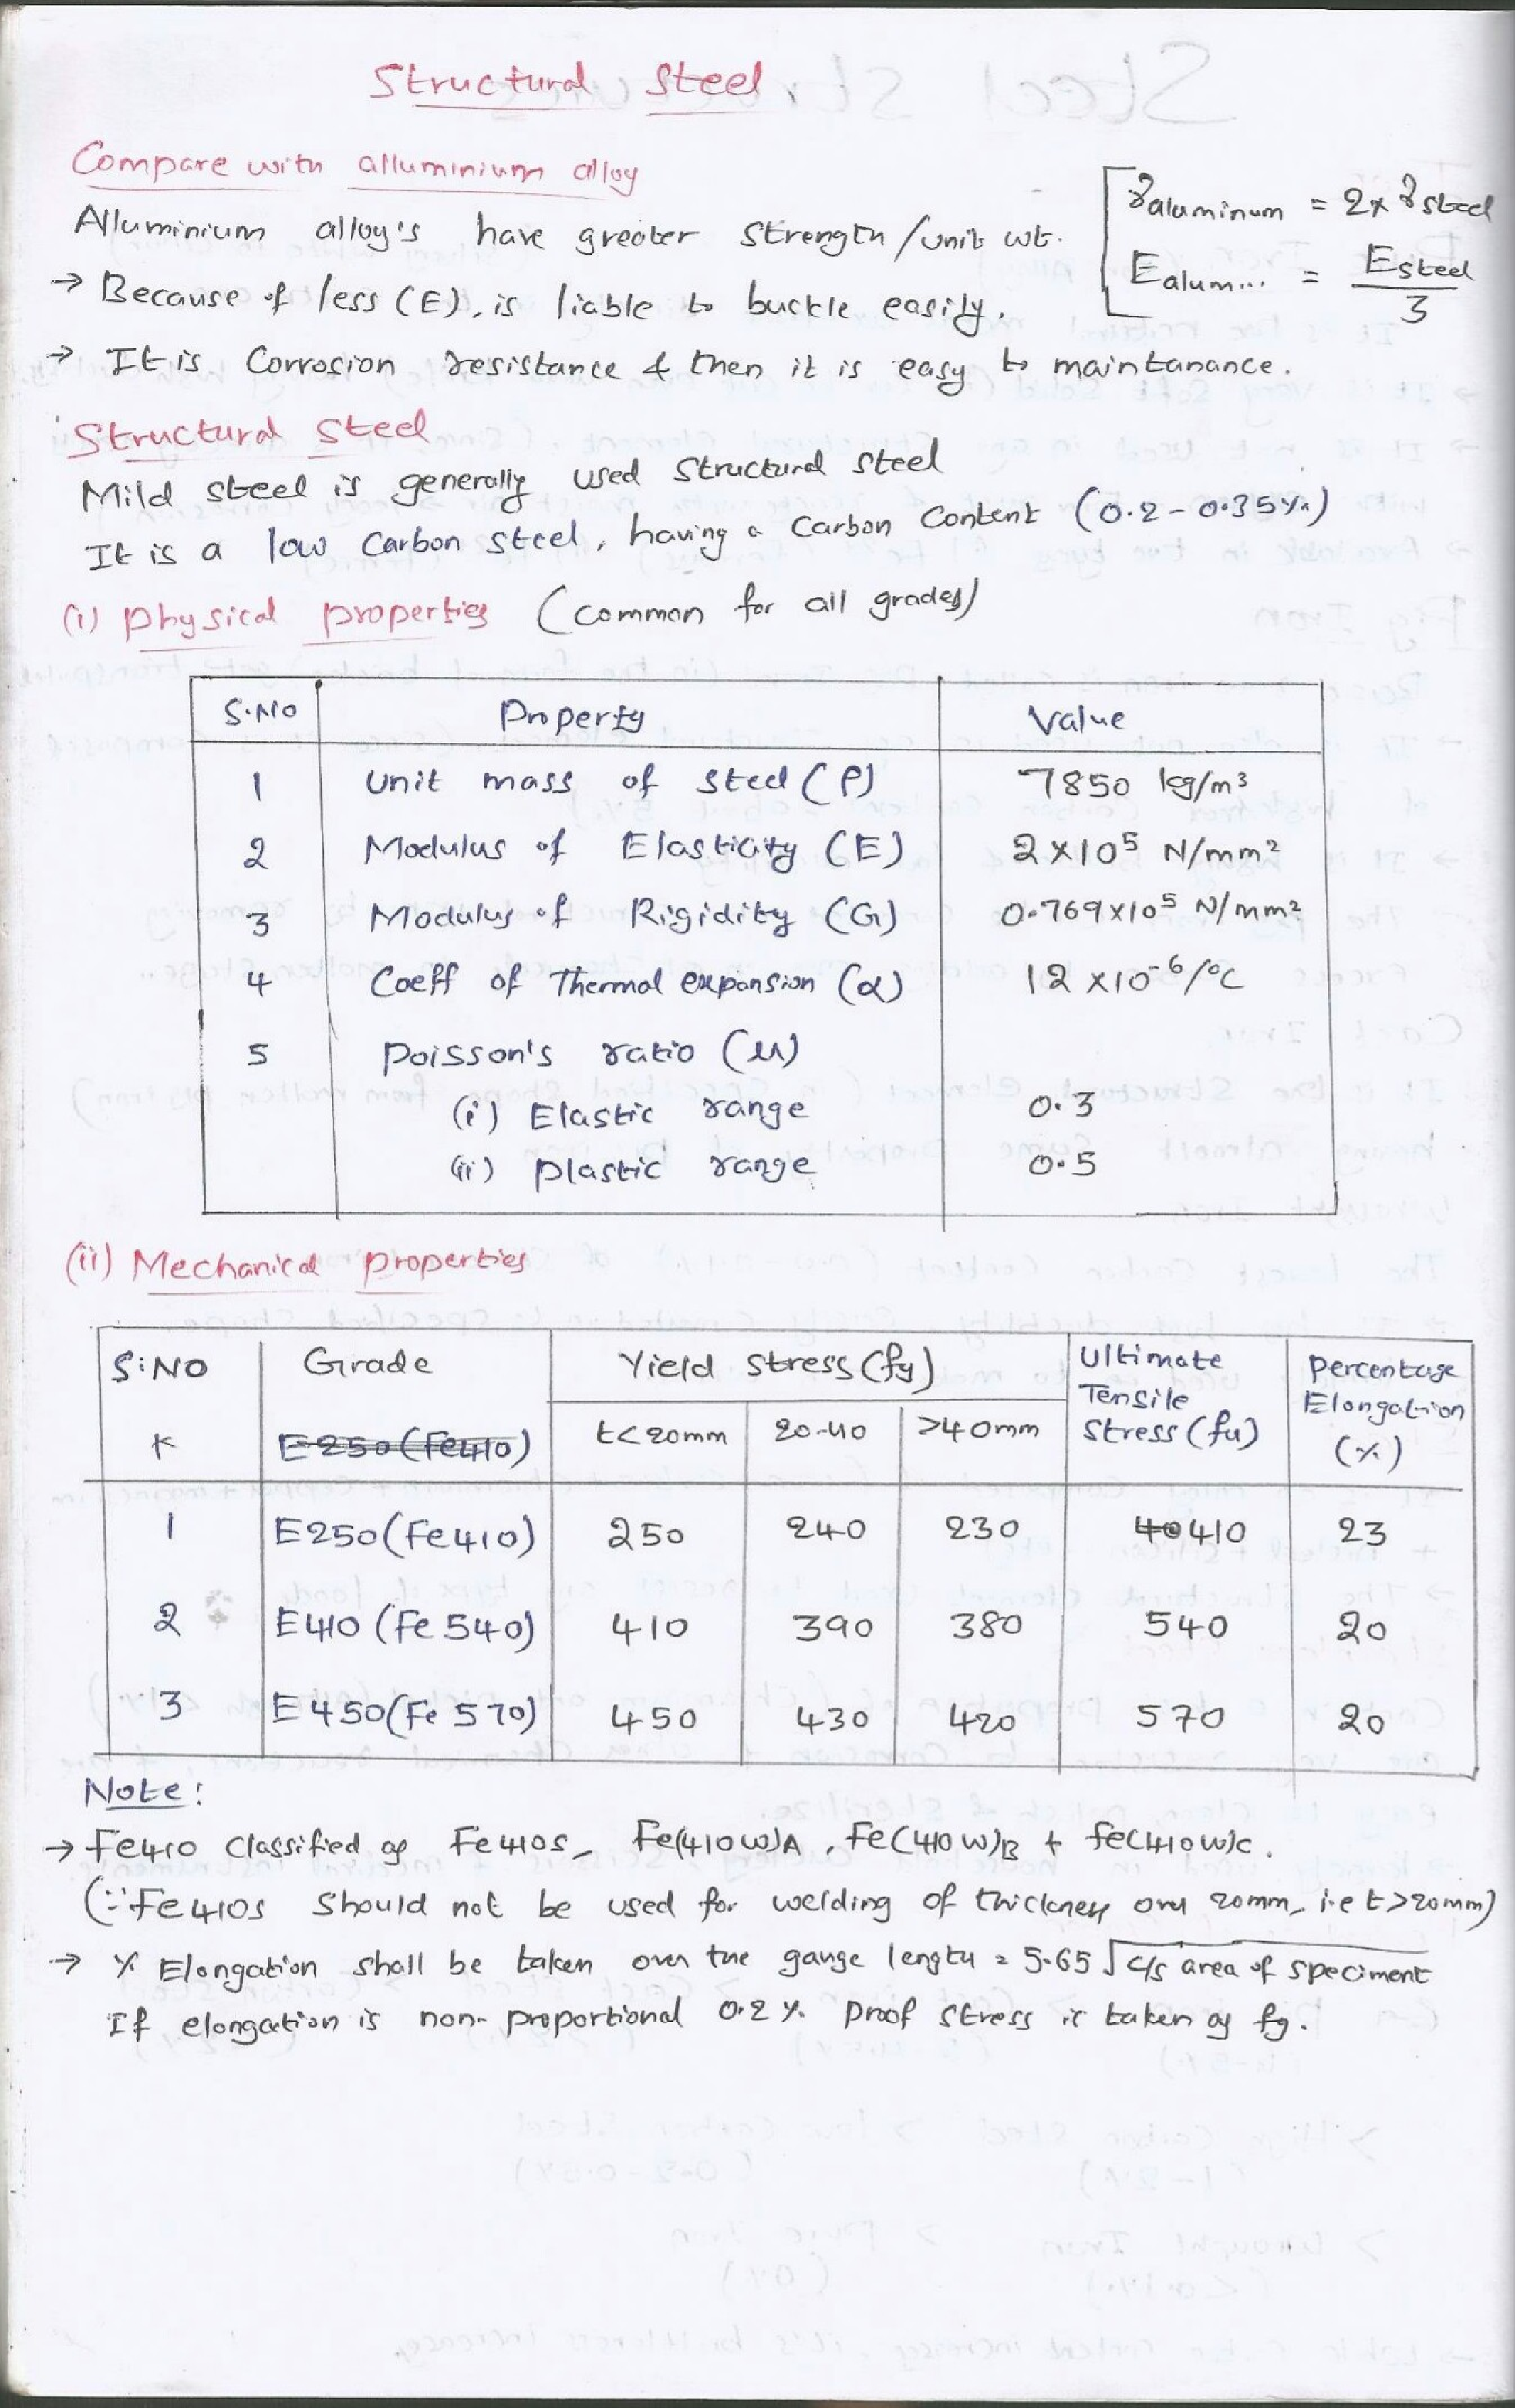 Structural Steel
Compare with alluminium alloy
Alluminium alloy's have greater strength/unit wt.
→ Because of less (E), is liable to buckle easily.
γaluminum = 2x γsteel
Ealum... = Esteel/3
→ It is Corrosion resistance & then it is easy to maintanance.
Structural Steel
Mild steel is generally used structural steel
It is a low carbon steel, having a carbon content (0.2-0.35%)
(i) physical properties (common for all grades)
S.No Property Value
1 unit mass of steel (ρ) 7850 kg/m³
2 Modulus of Elasticity (E) 2x10⁵ N/mm²
3 Modulus of Rigidity (G) 0.769x10⁵ N/mm²
4 Coeff of Thermal expansion (α) 12 x10⁻⁶/°C
5 Poisson's ratio (μ)
(i) Elastic range 0.3
(ii) plastic range 0.5
(ii) Mechanical properties
S.NO Grade Yield stress (fy) Ultimate Tensile Stress (fu) percentage Elongation (%)
E250 (Fe410) t<20mm 20-40 >40mm
1 E250 (Fe410) 250 240 230 40 410 23
2 E410 (Fe 540) 410 390 380 540 20
3 E450 (Fe 570) 450 430 420 570 20
Note:
→ Fe410 classified as Fe410s, Fe(410w)A, Fe(410w)B & fe(410w)c.
(∵ Fe410s should not be used for welding of thickness over 20mm, i.e t>20mm)
→ % Elongation shall be taken over the gauge length = 5.65 √c/s area of speciment
If elongation is non-proportional 0.2% proof stress is taken as fy.